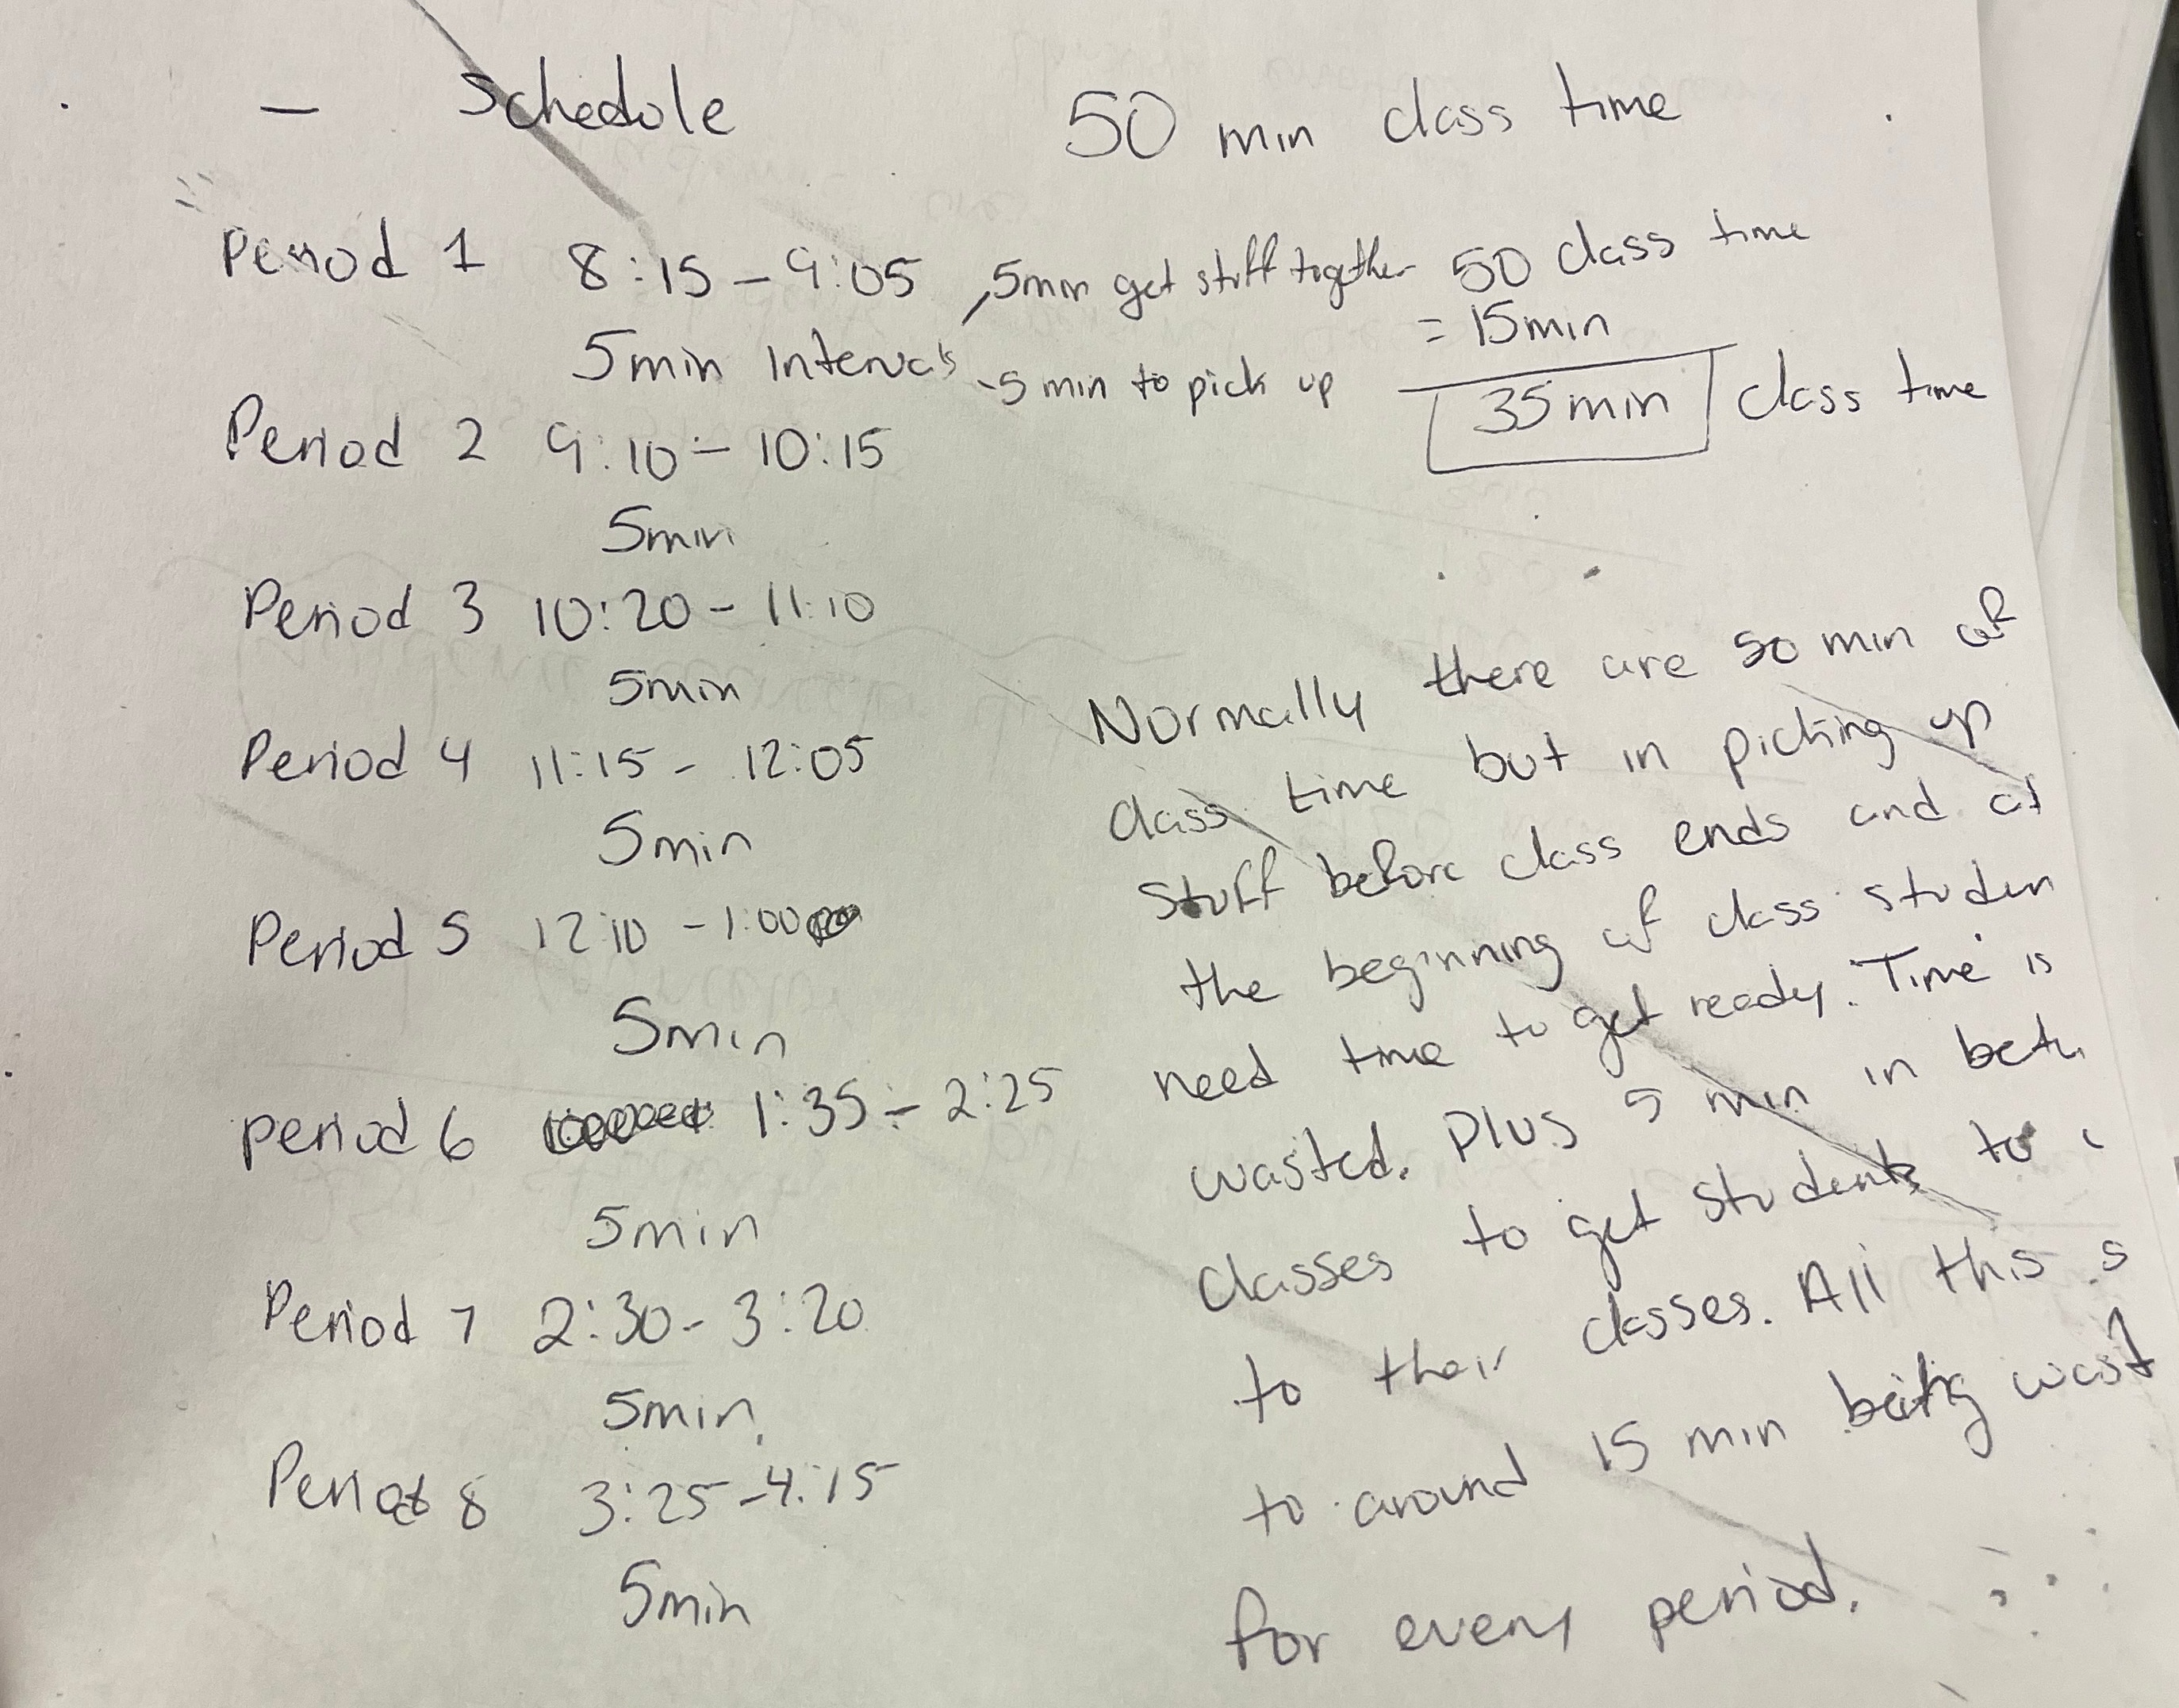 — Schedule 50 min class time
Period 1 8:15 - 9:05 , 5min get stuff together 50 class time
5min Intervals - 5 min to pick up = 15min
35min class time
Period 2 9:10 - 10:15
5min
Period 3 10:20 - 11:10
5min
Period 4 11:15 - 12:05
5min
Period 5 12:10 - 1:00
5min
Period 6 1:35 - 2:25
5min
Period 7 2:30 - 3:20
5min
Period 8 3:25 - 4:15
5min
Normally there are 50 min of
class time but in picking up
stuff before class ends and at
the beginning of class studen
need time to get ready. Time is
wasted. Plus 5 min in betw
classes to get students to
to their classes. All this s
to around 15 min being wast
for every period.